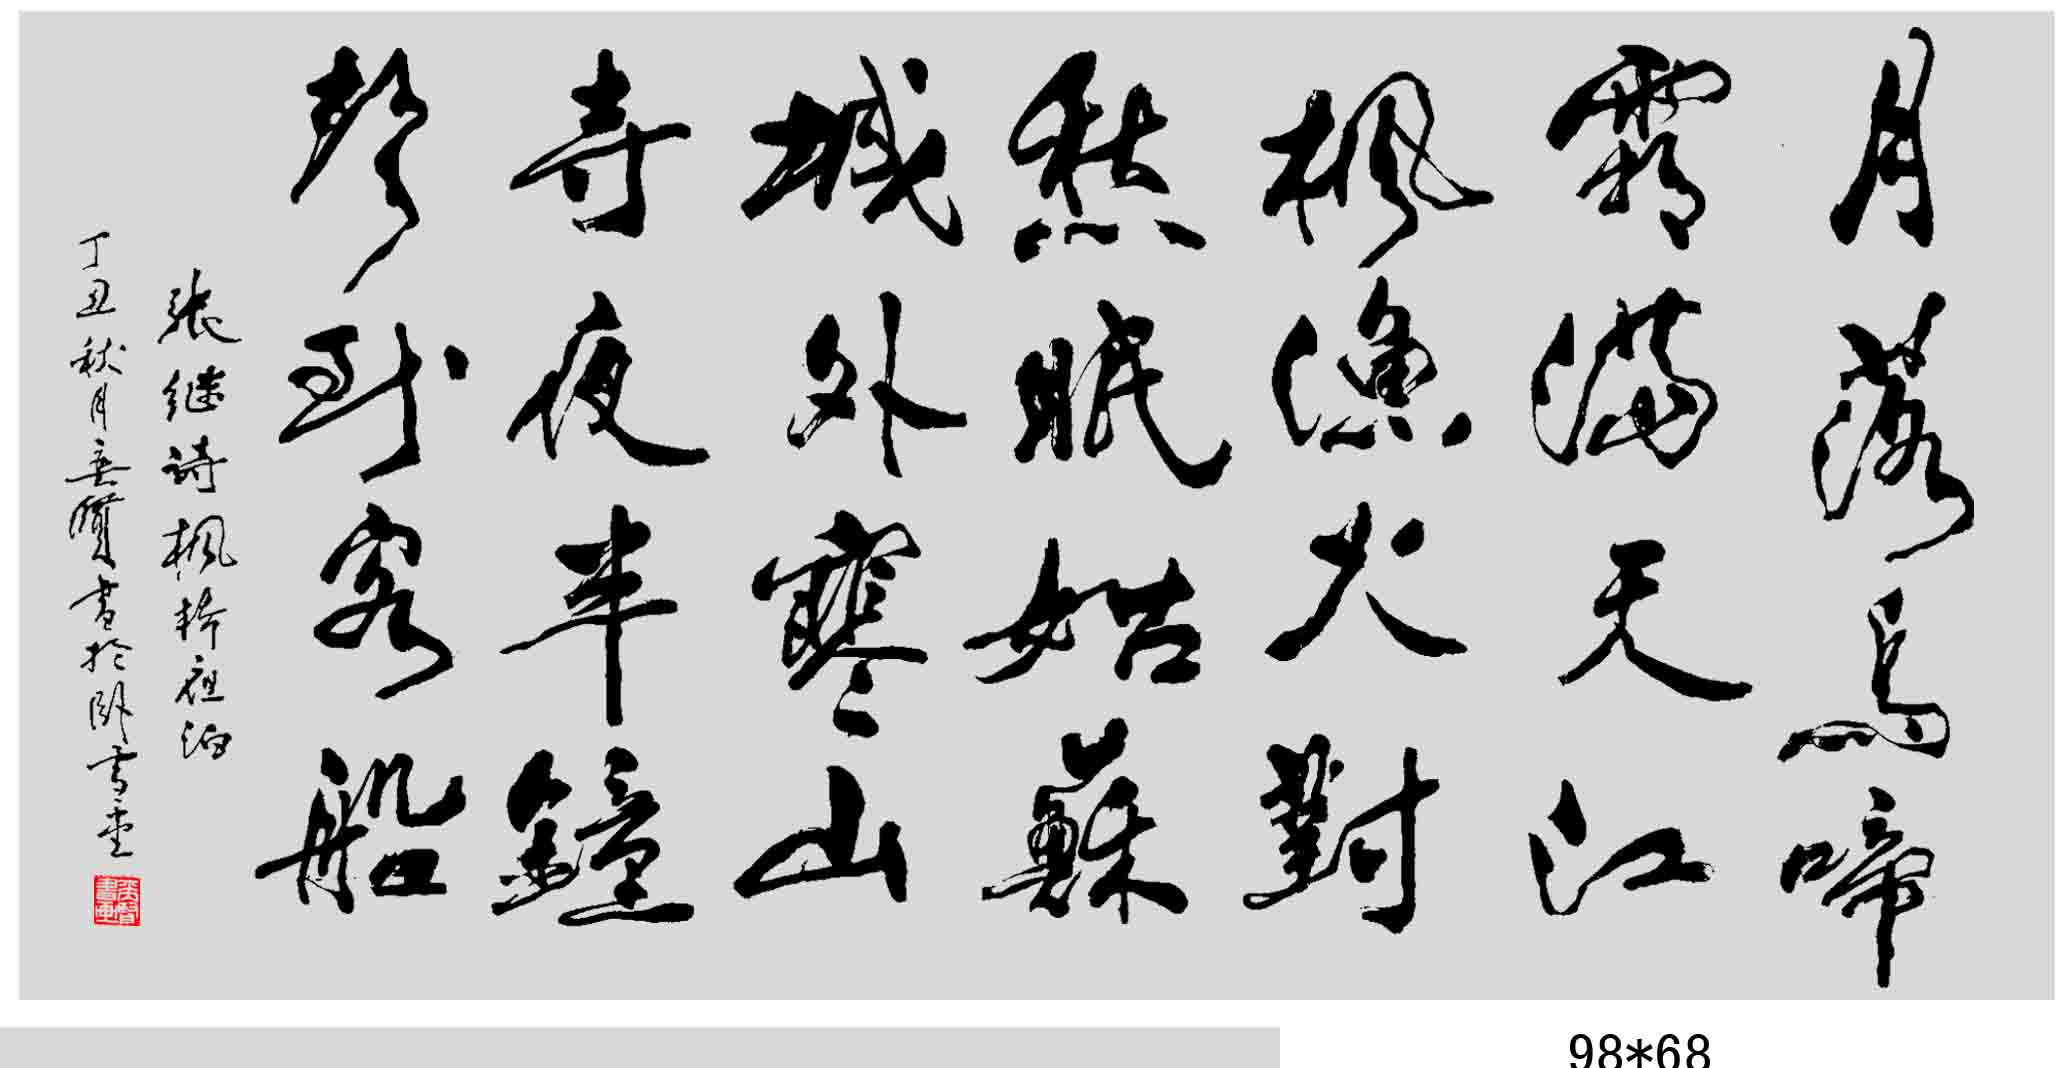 月落烏啼
霜滿天江
楓漁火對
愁眠姑蘇
城外寒山
寺夜半鐘
聲到客船
张继诗枫桥夜泊
丁丑秋月無贤書於卧雪堂
98*68